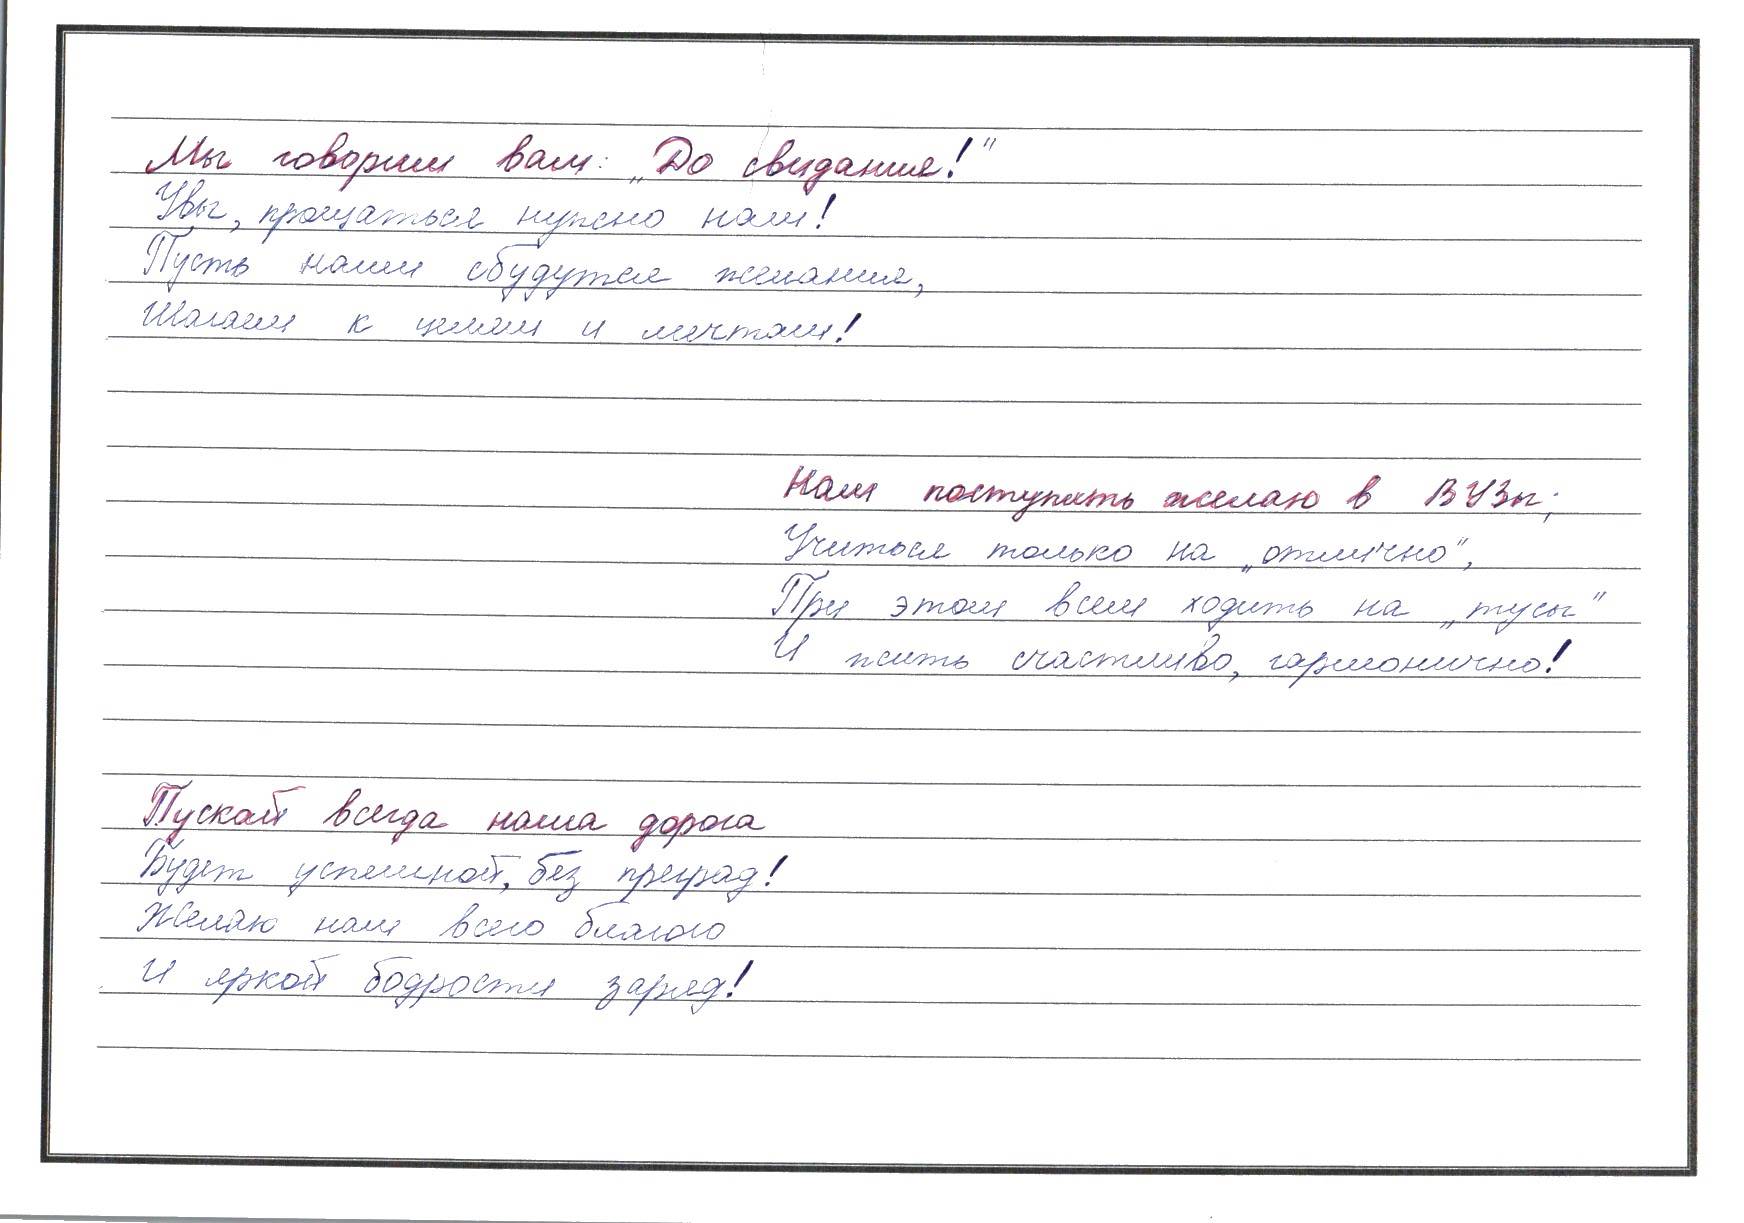 Мы говорим вам: „До свидания!"
Увы, прощаться нужно нам!
Пусть наши сбудутся желания,
Шагаем к целям и мечтам!
Нам поступить желаю в ВУЗы;
Учиться только на „отлично",
При этом всем ходить на „тусы"
И жить счастливо, гармонично!
Пускай всегда наша дорога
Будет успешной, без преград!
Желаю нам всего благого
И яркой бодрости заряд!